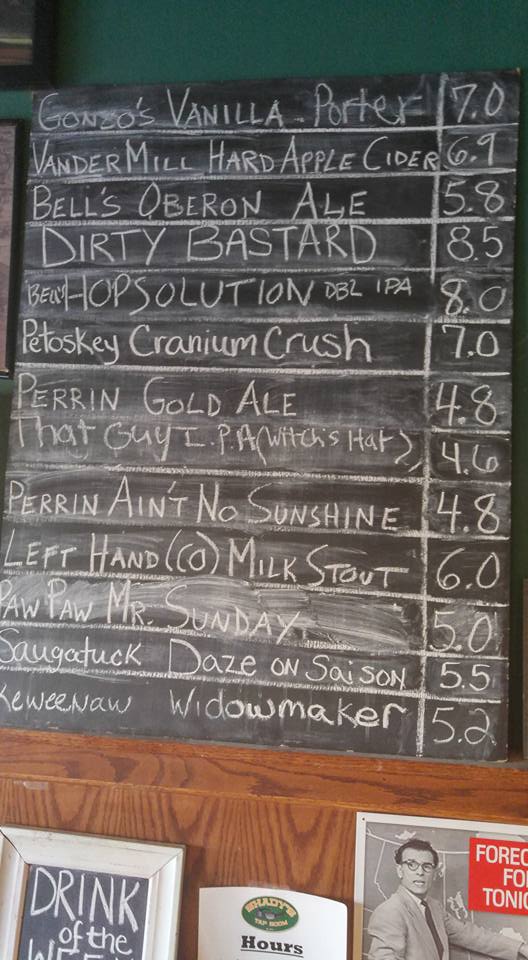 Gonzo's Vanilla Porter 7.0
VanderMill Hard Apple Cider 6.9
Bell's Oberon Ale 5.8
Dirty Bastard 8.5
Bell's Hopsolution DBL IPA 8.0
Petoskey Cranium Crush 7.0
Perrin Gold Ale 4.8
That Guy I.P.A (Witch's Hat) 4.6
Perrin Ain't No Sunshine 4.8
Left Hand (CO) Milk Stout 6.0
Paw Paw Mr. Sunday 5.0
Saugatuck Daze on Saison 5.5
Keweenaw Widowmaker 5.2
DRINK
of the
SHADY'S
TAP ROOM
Hours
FOREC
FO
TONIG